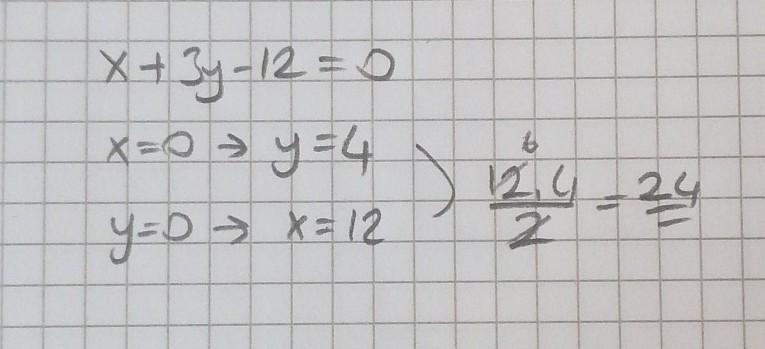 x+3y-12=0
x=0 → y=4
y=0 → x=12
) 6
12.4
2
= 24